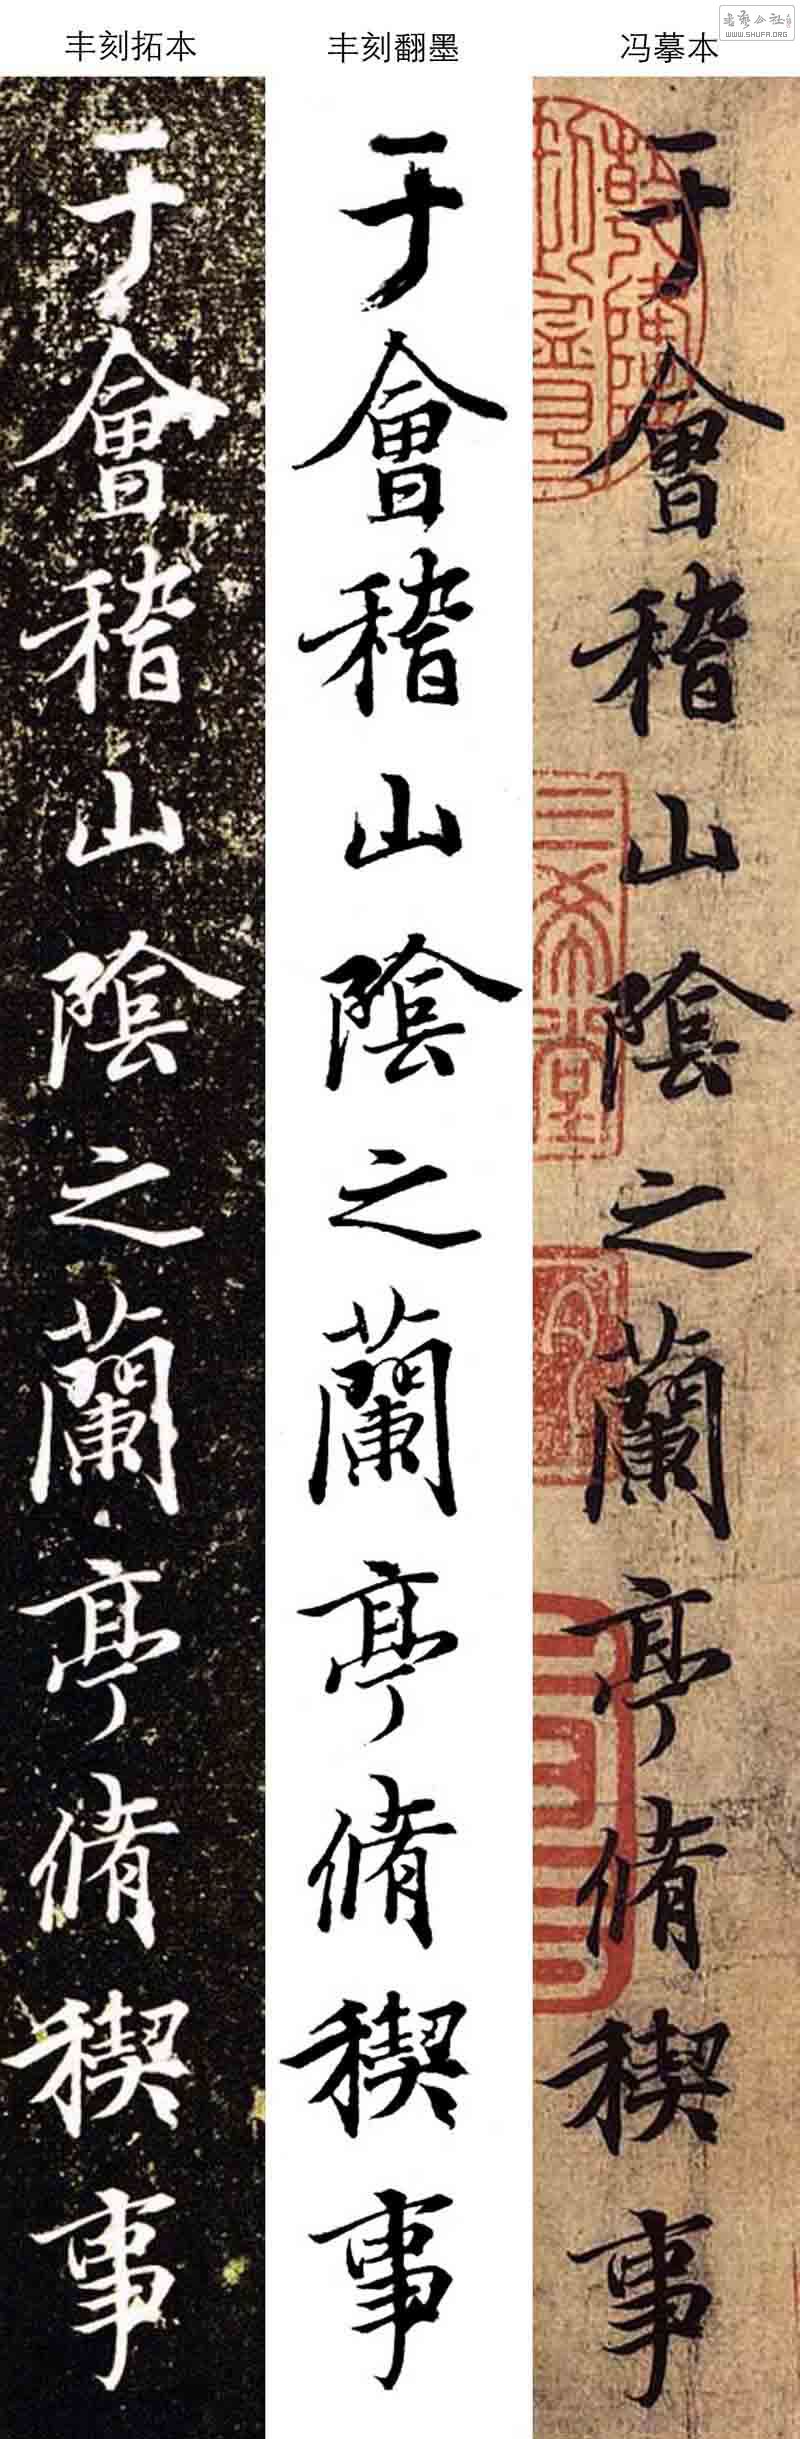 丰刻拓本
丰刻翻墨
冯摹本
WWW.SHUFA.ORG
于會稽山陰之蘭亭脩稧事
于會稽山陰之蘭亭脩稧事
于會稽山陰之蘭亭脩稧事
三希堂